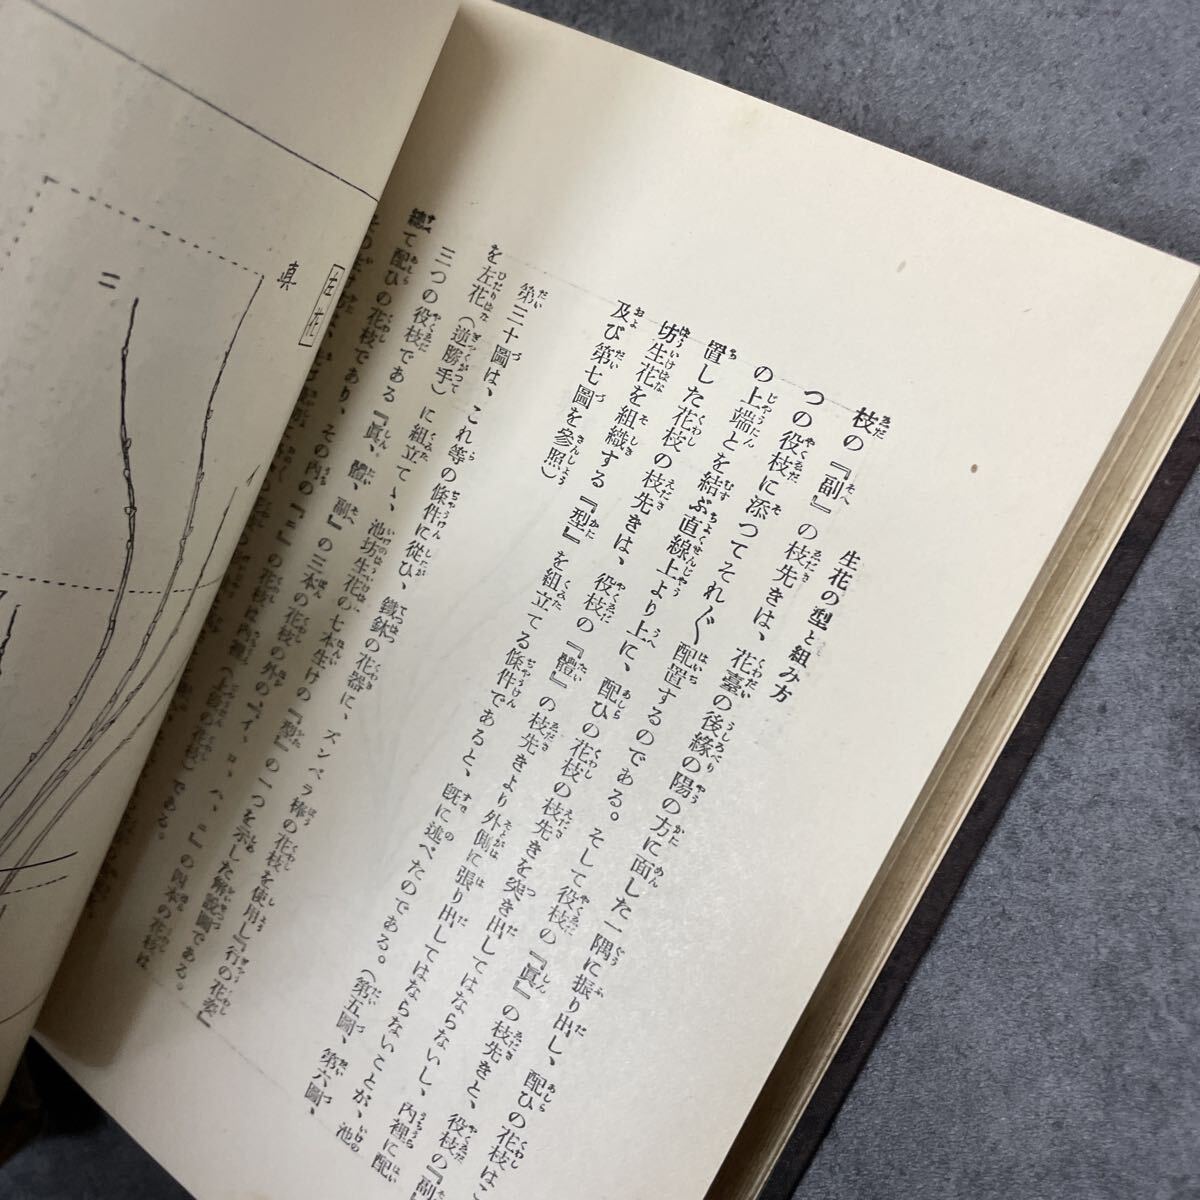 生花の型と組み方
枝の『副』の枝先きは、花臺の後緣の陽の方に面した一隅に振り出し、配ひの花枝はこ
つの役枝に添つてそれ〴〵配置するのである。そして役枝の『眞』の枝先きと、役枝の『副』
の上端とを結ぶ直線上より上に、配ひの花枝の枝先きを突き出してはならないし、內裡に配
置した花枝の枝先きは、役枝の『體』の枝先きより外側に張り出してはならないことが、池
坊生花を組織する『型』を組立てる條件であると、旣に述べたのである。(第五圖、第六圖、
及び第七圖を參照)
第三十圖は、これ等の條件に從ひ、鐵鉢の花器に、ズンベラ棒の花枝を使用し『行の花姿』
を左花(逆勝手)に組立て、池坊生花の七本生けの『型』の一つを示した解說圖である。
三つの役枝である『眞、體、副』の三本の花枝の外の『イ、ロ、ハ、ニ』の四本の花枝は
總て配ひの花枝であり、その內の『ニ』の花枝は內裡(上段の花枝)である。
左花
真
ニ
イ